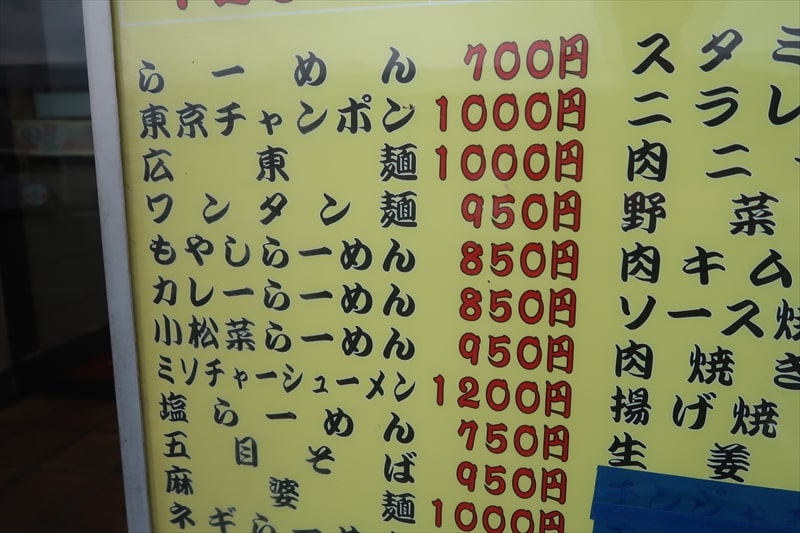 らーめん 700円
東京チャンポン 1000円
広東麺 1000円
ワンタン麺 950円
もやしらーめん 850円
カレーらーめん 850円
小松菜らーめん 950円
ミソチャーシューメン 1200円
塩らーめん 750円
五目そば 950円
麻婆麺 1000円
ネギらーめん
スタミ
ニラレ
肉ニ
野菜
肉キム
ソース焼
肉焼き
揚げ焼
生姜